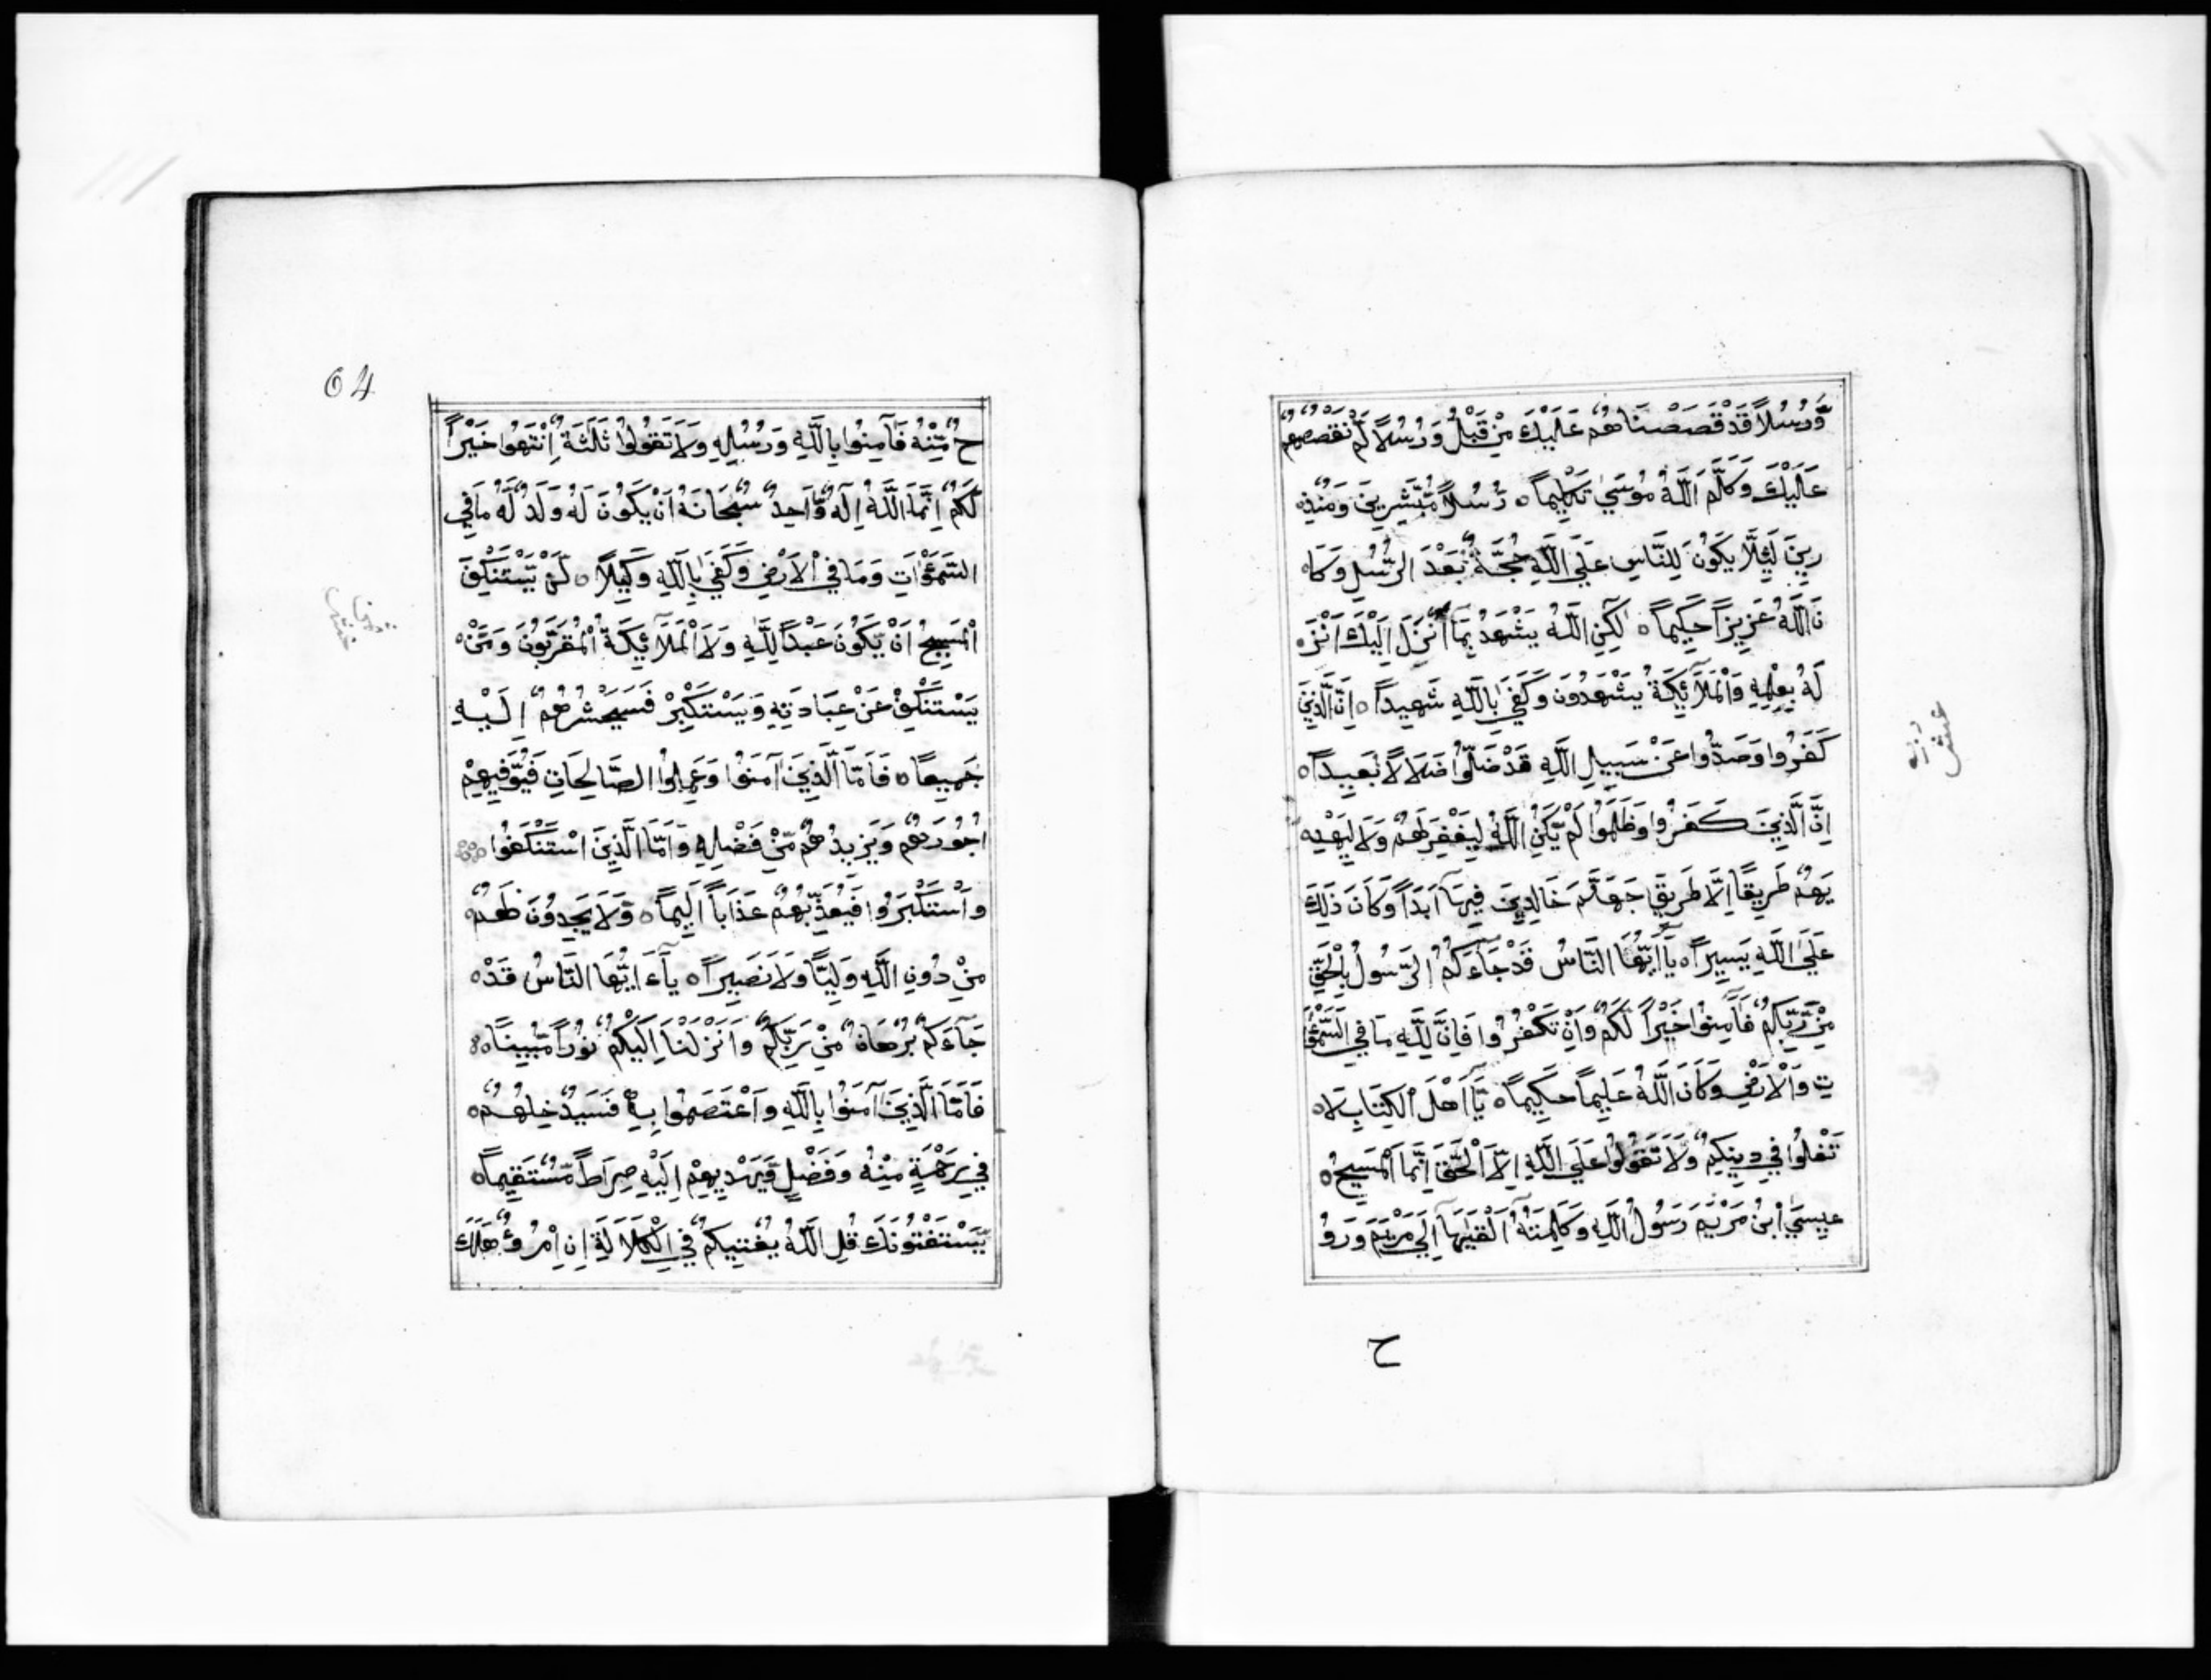 وَّرُسُلًا قَدْ قَصَصْنَاهُمْ عَلَيْكَ مِنْ قَبْلُ وَرُسُلًا لَّمْ نَقْصُصْهُمْ
عَلَيْكَ وَكَلَّمَ اللَّهُ مُوسَىٰ تَكْلِيمًا ۝ رُسُلًا مُّبَشِّرِينَ وَمُنْذِ
رِينَ لِئَلَّا يَكُونَ لِلنَّاسِ عَلَى اللَّهِ حُجَّةٌ بَعْدَ الرُّسُلِ وَكَا
نَ اللَّهُ عَزِيزًا حَكِيمًا ۝ لَٰكِنِ اللَّهُ يَشْهَدُ بِمَا أَنْزَلَ إِلَيْكَ أَنْزَ
لَهُ بِعِلْمِهِ وَالْمَلَائِكَةُ يَشْهَدُونَ وَكَفَىٰ بِاللَّهِ شَهِيدًا ۝ إِنَّ الَّذِينَ
كَفَرُوا وَصَدُّوا عَنْ سَبِيلِ اللَّهِ قَدْ ضَلُّوا ضَلَالًا بَعِيدًا ۝
إِنَّ الَّذِينَ كَفَرُوا وَظَلَمُوا لَمْ يَكُنِ اللَّهُ لِيَغْفِرَ لَهُمْ وَلَا لِيَهْدِ
يَهُمْ طَرِيقًا إِلَّا طَرِيقَ جَهَنَّمَ خَالِدِينَ فِيهَا أَبَدًا وَكَانَ ذَٰلِكَ
عَلَى اللَّهِ يَسِيرًا ۝ يَا أَيُّهَا النَّاسُ قَدْ جَاءَكُمُ الرَّسُولُ بِالْحَقِّ
مِنْ رَّبِّكُمْ فَآمِنُوا خَيْرًا لَّكُمْ وَإِنْ تَكْفُرُوا فَإِنَّ لِلَّهِ مَا فِي السَّمٰوَا
تِ وَالْأَرْضِ وَكَانَ اللَّهُ عَلِيمًا حَكِيمًا ۝ يَا أَهْلَ الْكِتَابِ لَا
تَغْلُوا فِي دِينِكُمْ وَلَا تَقُولُوا عَلَى اللَّهِ إِلَّا الْحَقَّ إِنَّمَا الْمَسِيحُ
عِيسَى ابْنُ مَرْيَمَ رَسُولُ اللَّهِ وَكَلِمَتُهُ أَلْقَيٰهَا إِلَىٰ مَرْيَمَ وَرُو
ح
64
حٌ مِّنْهُ فَآمِنُوا بِاللَّهِ وَرُسُلِهِ وَلَا تَقُولُوا ثَلٰثَةٌ اِنْتَهُوا خَيْرًا
لَّكُمْ إِنَّمَا اللَّهُ إِلٰهٌ وَّاحِدٌ سُبْحَانَهُ أَنْ يَكُونَ لَهُ وَلَدٌ لَّهُ مَا فِي
السَّمٰوَاتِ وَمَا فِي الْأَرْضِ وَكَفَىٰ بِاللَّهِ وَكِيلًا ۝ لَنْ يَّسْتَنْكِفَ
الْمَسِيحُ أَنْ يَّكُونَ عَبْدًا لِّلَّهِ وَلَا الْمَلَائِكَةُ الْمُقَرَّبُونَ وَمَنْ
يَسْتَنْكِفْ عَنْ عِبَادَتِهِ وَيَسْتَكْبِرْ فَسَيَحْشُرُهُمْ إِلَيْهِ
جَمِيعًا ۝ فَأَمَّا الَّذِينَ آمَنُوا وَعَمِلُوا الصَّالِحَاتِ فَيُوَفِّيهِمْ
أُجُورَهُمْ وَيَزِيدُهُمْ مِّنْ فَضْلِهِ وَأَمَّا الَّذِينَ اسْتَنْكَفُوا
وَاسْتَكْبَرُوا فَيُعَذِّبُهُمْ عَذَابًا أَلِيمًا ۝ وَّلَا يَجِدُونَ لَهُمْ
مِنْ دُونِ اللَّهِ وَلِيًّا وَلَا نَصِيرًا ۝ يَاءَ أَيُّهَا النَّاسُ قَدْ
جَاءَكُمْ بُرْهَانٌ مِّنْ رَبِّكُمْ وَأَنْزَلْنَا إِلَيْكُمْ نُورًا مُّبِينًا ۝
فَأَمَّا الَّذِينَ آمَنُوا بِاللَّهِ وَاعْتَصَمُوا بِهِ فَسَيُدْخِلُهُمْ
فِي رَحْمَةٍ مِنْهُ وَفَضْلٍ وَّيَهْدِيهِمْ إِلَيْهِ صِرَاطًا مُّسْتَقِيمًا ۝
يَّسْتَفْتُونَكَ قُلِ اللَّهُ يُفْتِيكُمْ فِي الْكَلَالَةِ إِنِ امْرُؤٌ هَلَكَ